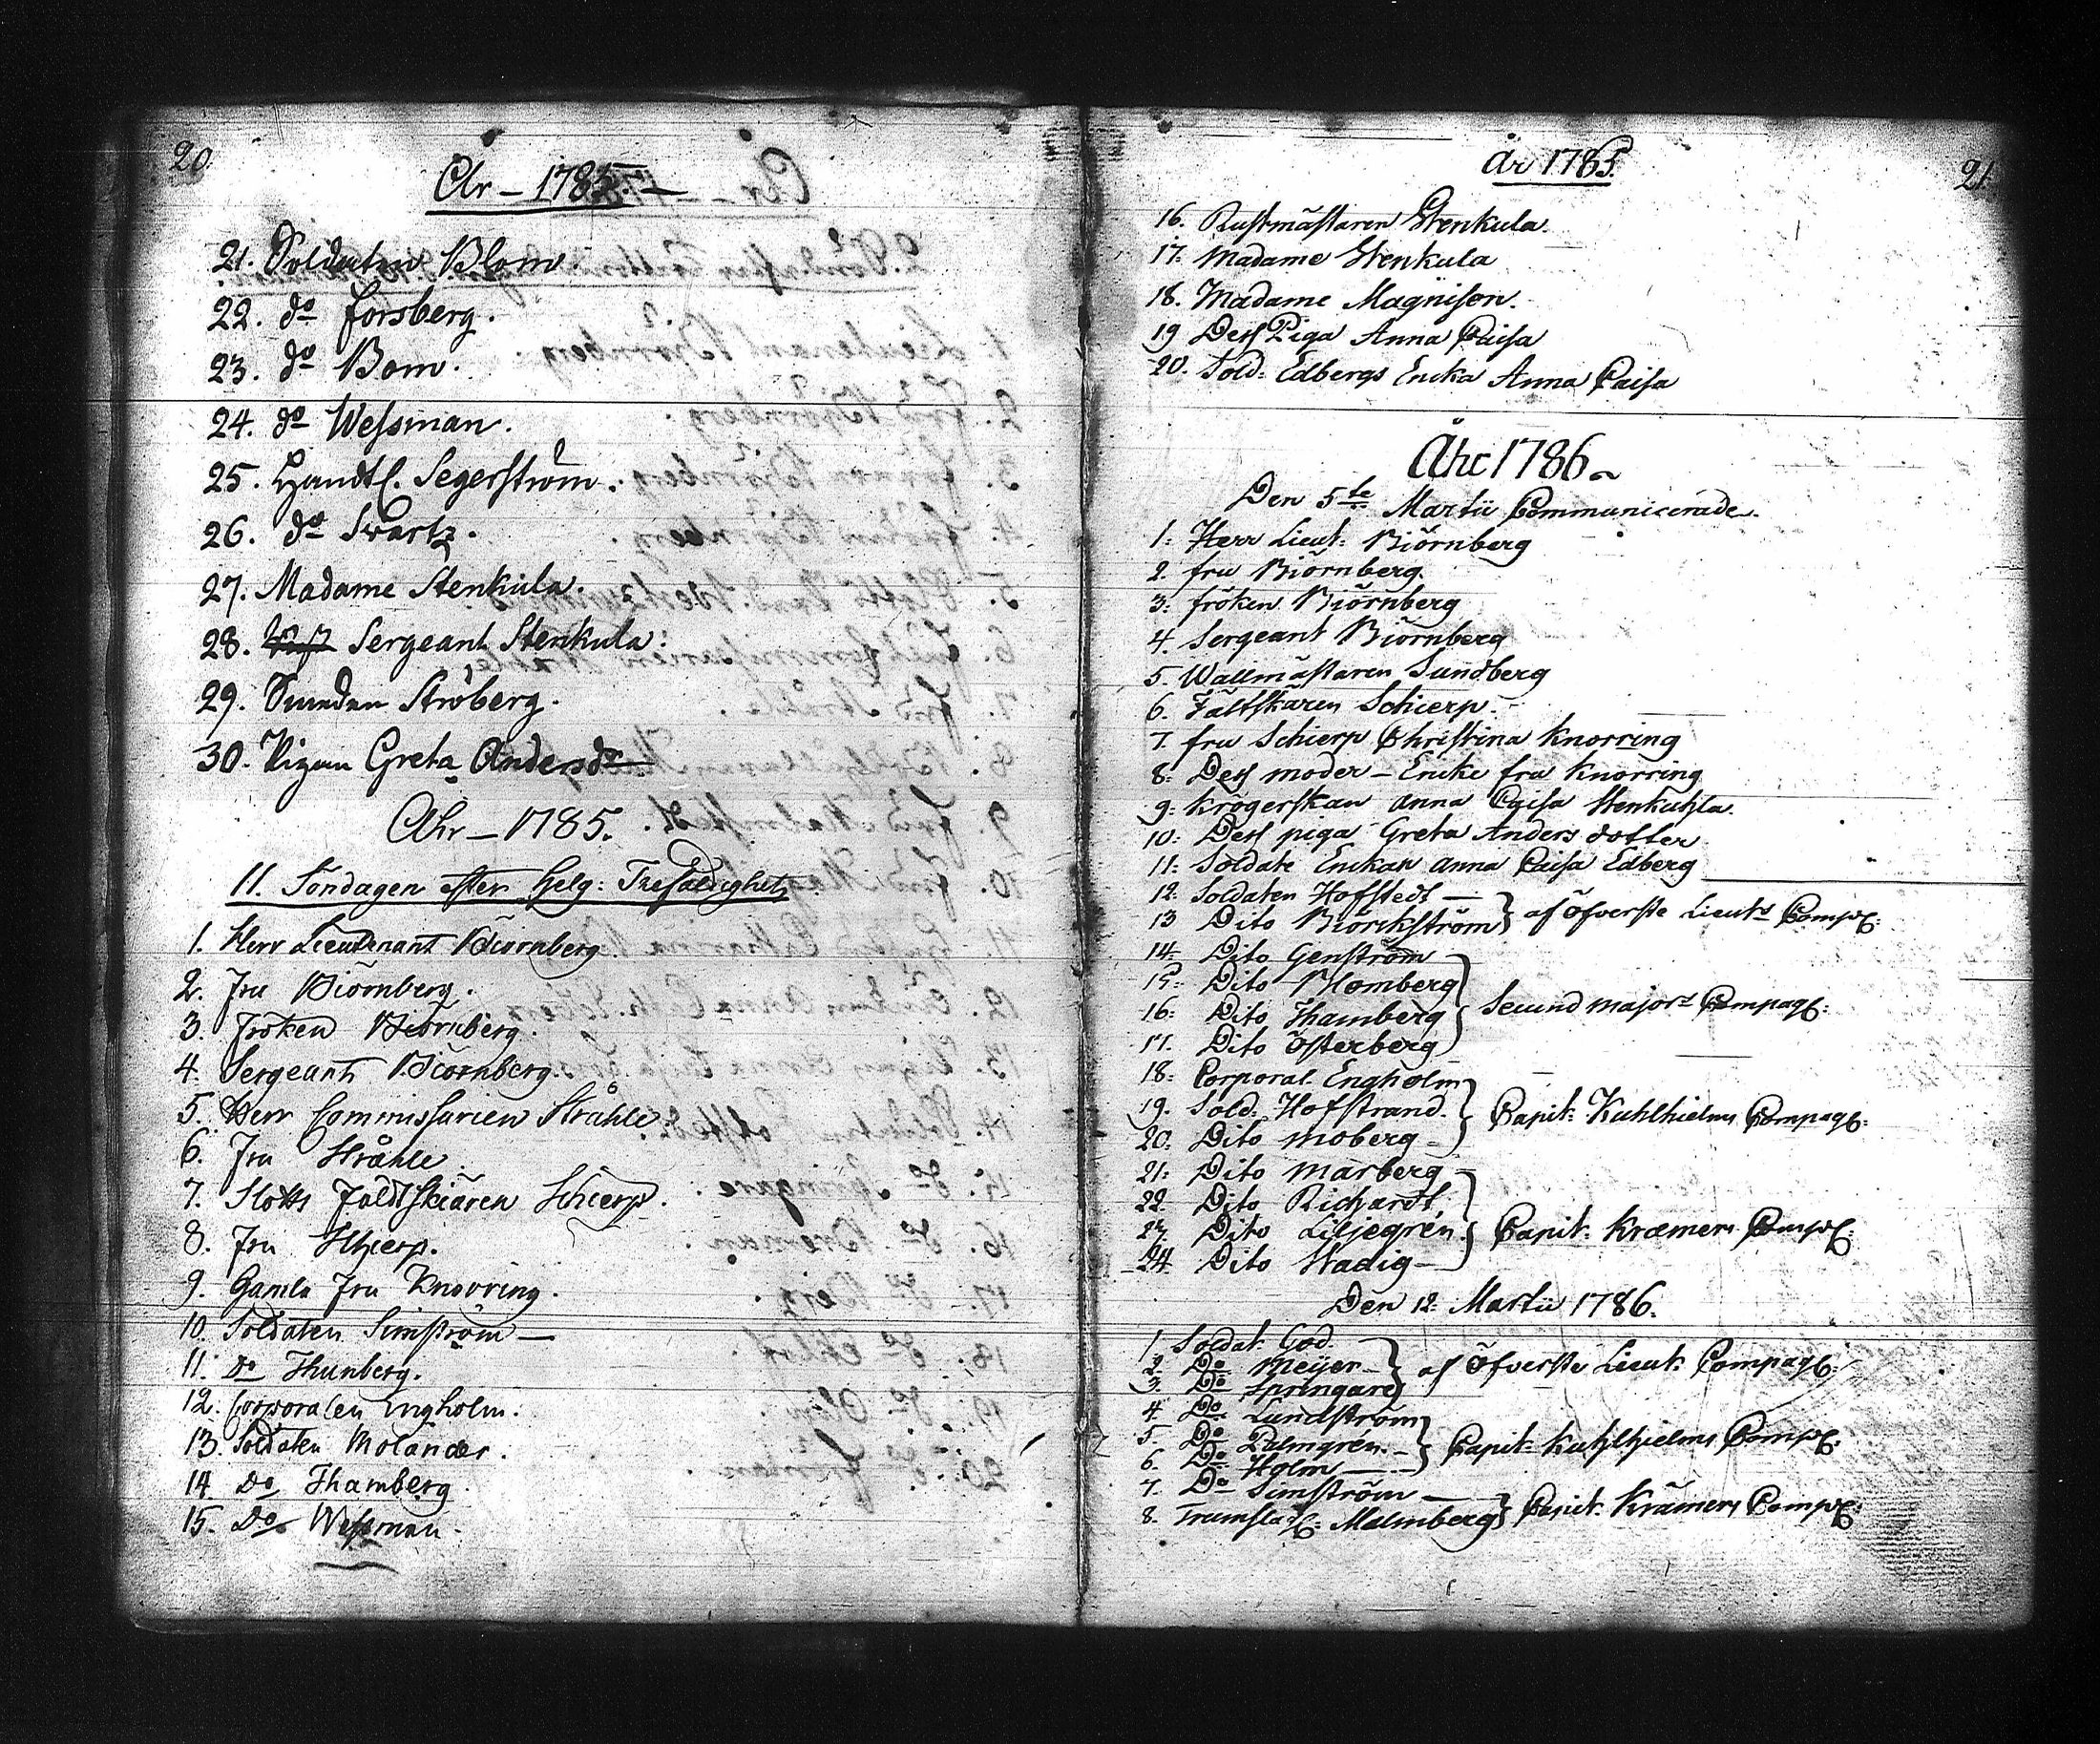 20.
Ahr – 1785. –
21. Soldaten Blom
22. do Forsberg.
23. do Bom.
24. do Wessman.
25. Handtl. Segerström.
26. do Swartz.
27. Madame Stenkula.
28. Sergeant Stenkula.
29. Ströberg.
30. Pigan Greta Andersdr
Ahr – 1785.
11. Söndagen efter Helg: Trefaldighetz
1. Herr Lieutenant Biörnberg.
2. Fru Biörnberg.
3. Fröken Biörnberg.
4. Sergeant Biörnberg.
5. Herr Commissarien Stråhle.
6. Fru Stråhle.
7. Slotts Fäldtskiären Schierp.
8. Fru Schierp.
9. Gamla Fru Knorring.
10. Soldaten Simström —
11. Do Thunberg.
12. Corporalen Engholm.
13. Soldaten Molander.
14. Do Thamberg.
15. Do Wessman.
21.
År 1785.
16. Rustmästaren Stenkula.
17. Madame Stenkula
18. Madame Magnison.
19 Dess Piga Anna Caisa
20. Sold: Edbergs Encka Anna Caisa
Åhr 1786
Den 5te Martii Communicerade.
1: Herr Lieut: Biörnberg
2. fru Biörnberg.
3: fröken Biörnberg
4. Sergeant Biörnberg
5. Wallmästaren Sundberg
6. Fältskären Schierp.
7. fru Schierp Christina Knorring
8: Dess moder – Encke fru Knorring
9: Krögerskan Anna Cajsa Stenkuhla.
10: Dess piga Greta Anders dotter
11: Soldate Enckan Anna Caisa Edberg
12. Soldaten Hoffstedt —
13 Dito Biörckström } af Öfverste Lieuts Compag:
14: Dito Genström
15: Dito Blomberg
16: Dito Thamberg } Secund majors Compag:
17. Dito Österberg
18: Corporal Engholm
19. Sold: Hofstrand. } Capit: Kuhlhielms Compag:
20. Dito Moberg –
21: Dito Marberg –
22. Dito Richardt,
23. Dito Liljegrén. } Capit: Kræmers Compag:
24. Dito Wadig –
Den 12: Martii 1786.
1. Soldat: God.
2. Do Meijer – } af Öfverste Lieut: Compag:
3. Do Springare
4. Do Lundström
5. Do Palmgrén. – } Capit: Kuhlhielms Compag:
6. Do Holm —
7. Do Simström —
8. Trumsla: Malmberg } Capit: Krämers Compag: